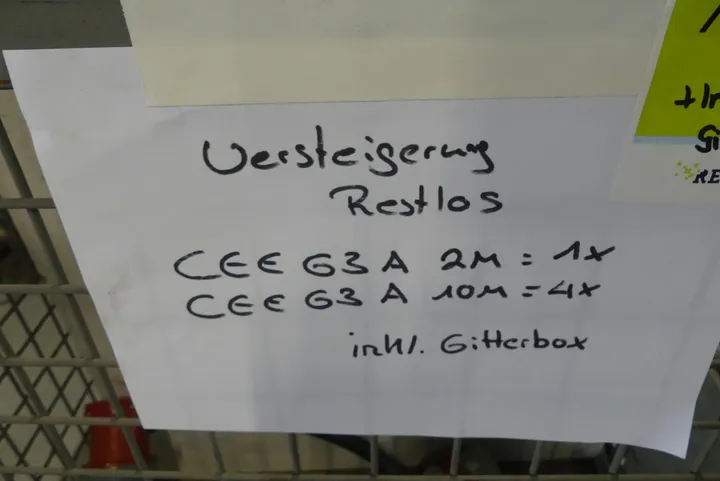 Versteigerung
Restlos
CEE 63 A 2M = 1x
CEE 63 A 10M = 4x
inkl. Gitterbox